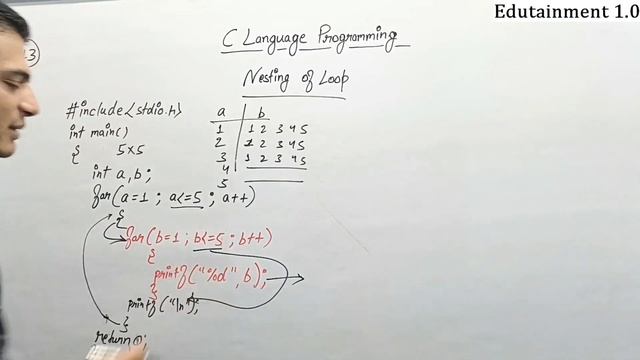 Edutainment 1.0
C Language Programming
Nesting of Loop
3
#include<stdio.h>
int main()
{ 5x5
int a,b;
for(a=1 ; a<=5 ; a++)
{
for(b=1 ; b<=5 ; b++)
{
printf("%d", b);
}
printf("\n");
}
return 0;
a b
1 1 2 3 4 5
2 1 2 3 4 5
3 1 2 3 4 5
4
5